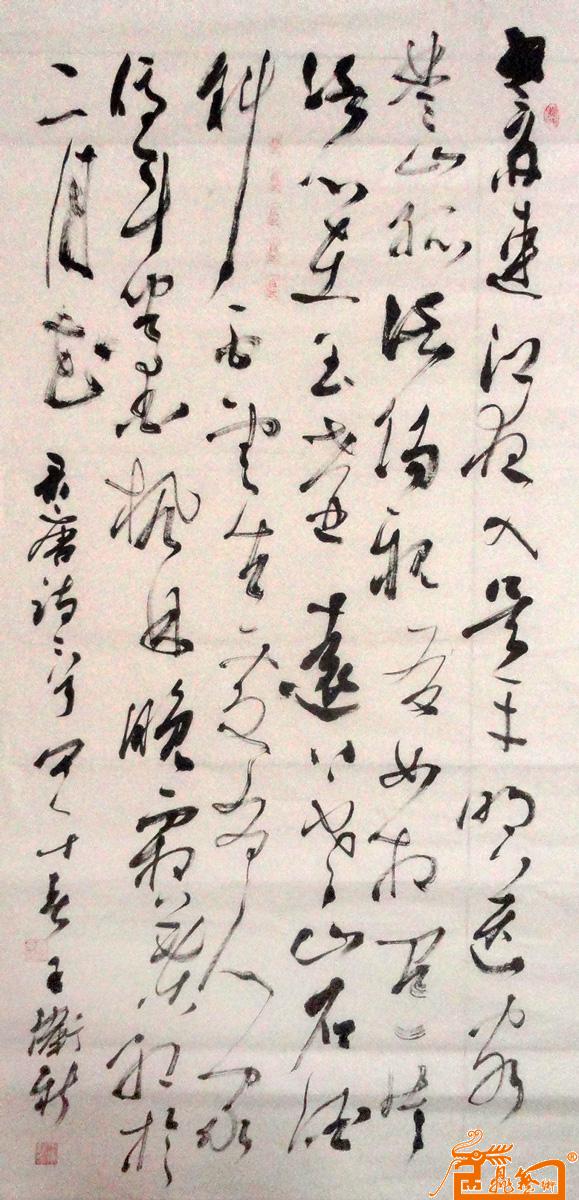 寒雨连江夜入吴平明送客
楚山孤洛阳亲友如相问一片
冰心在玉壶远上寒山石径
斜白云生处有人家
停车坐爱枫林晚霜叶红于
二月花
录唐诗二首甲午春王